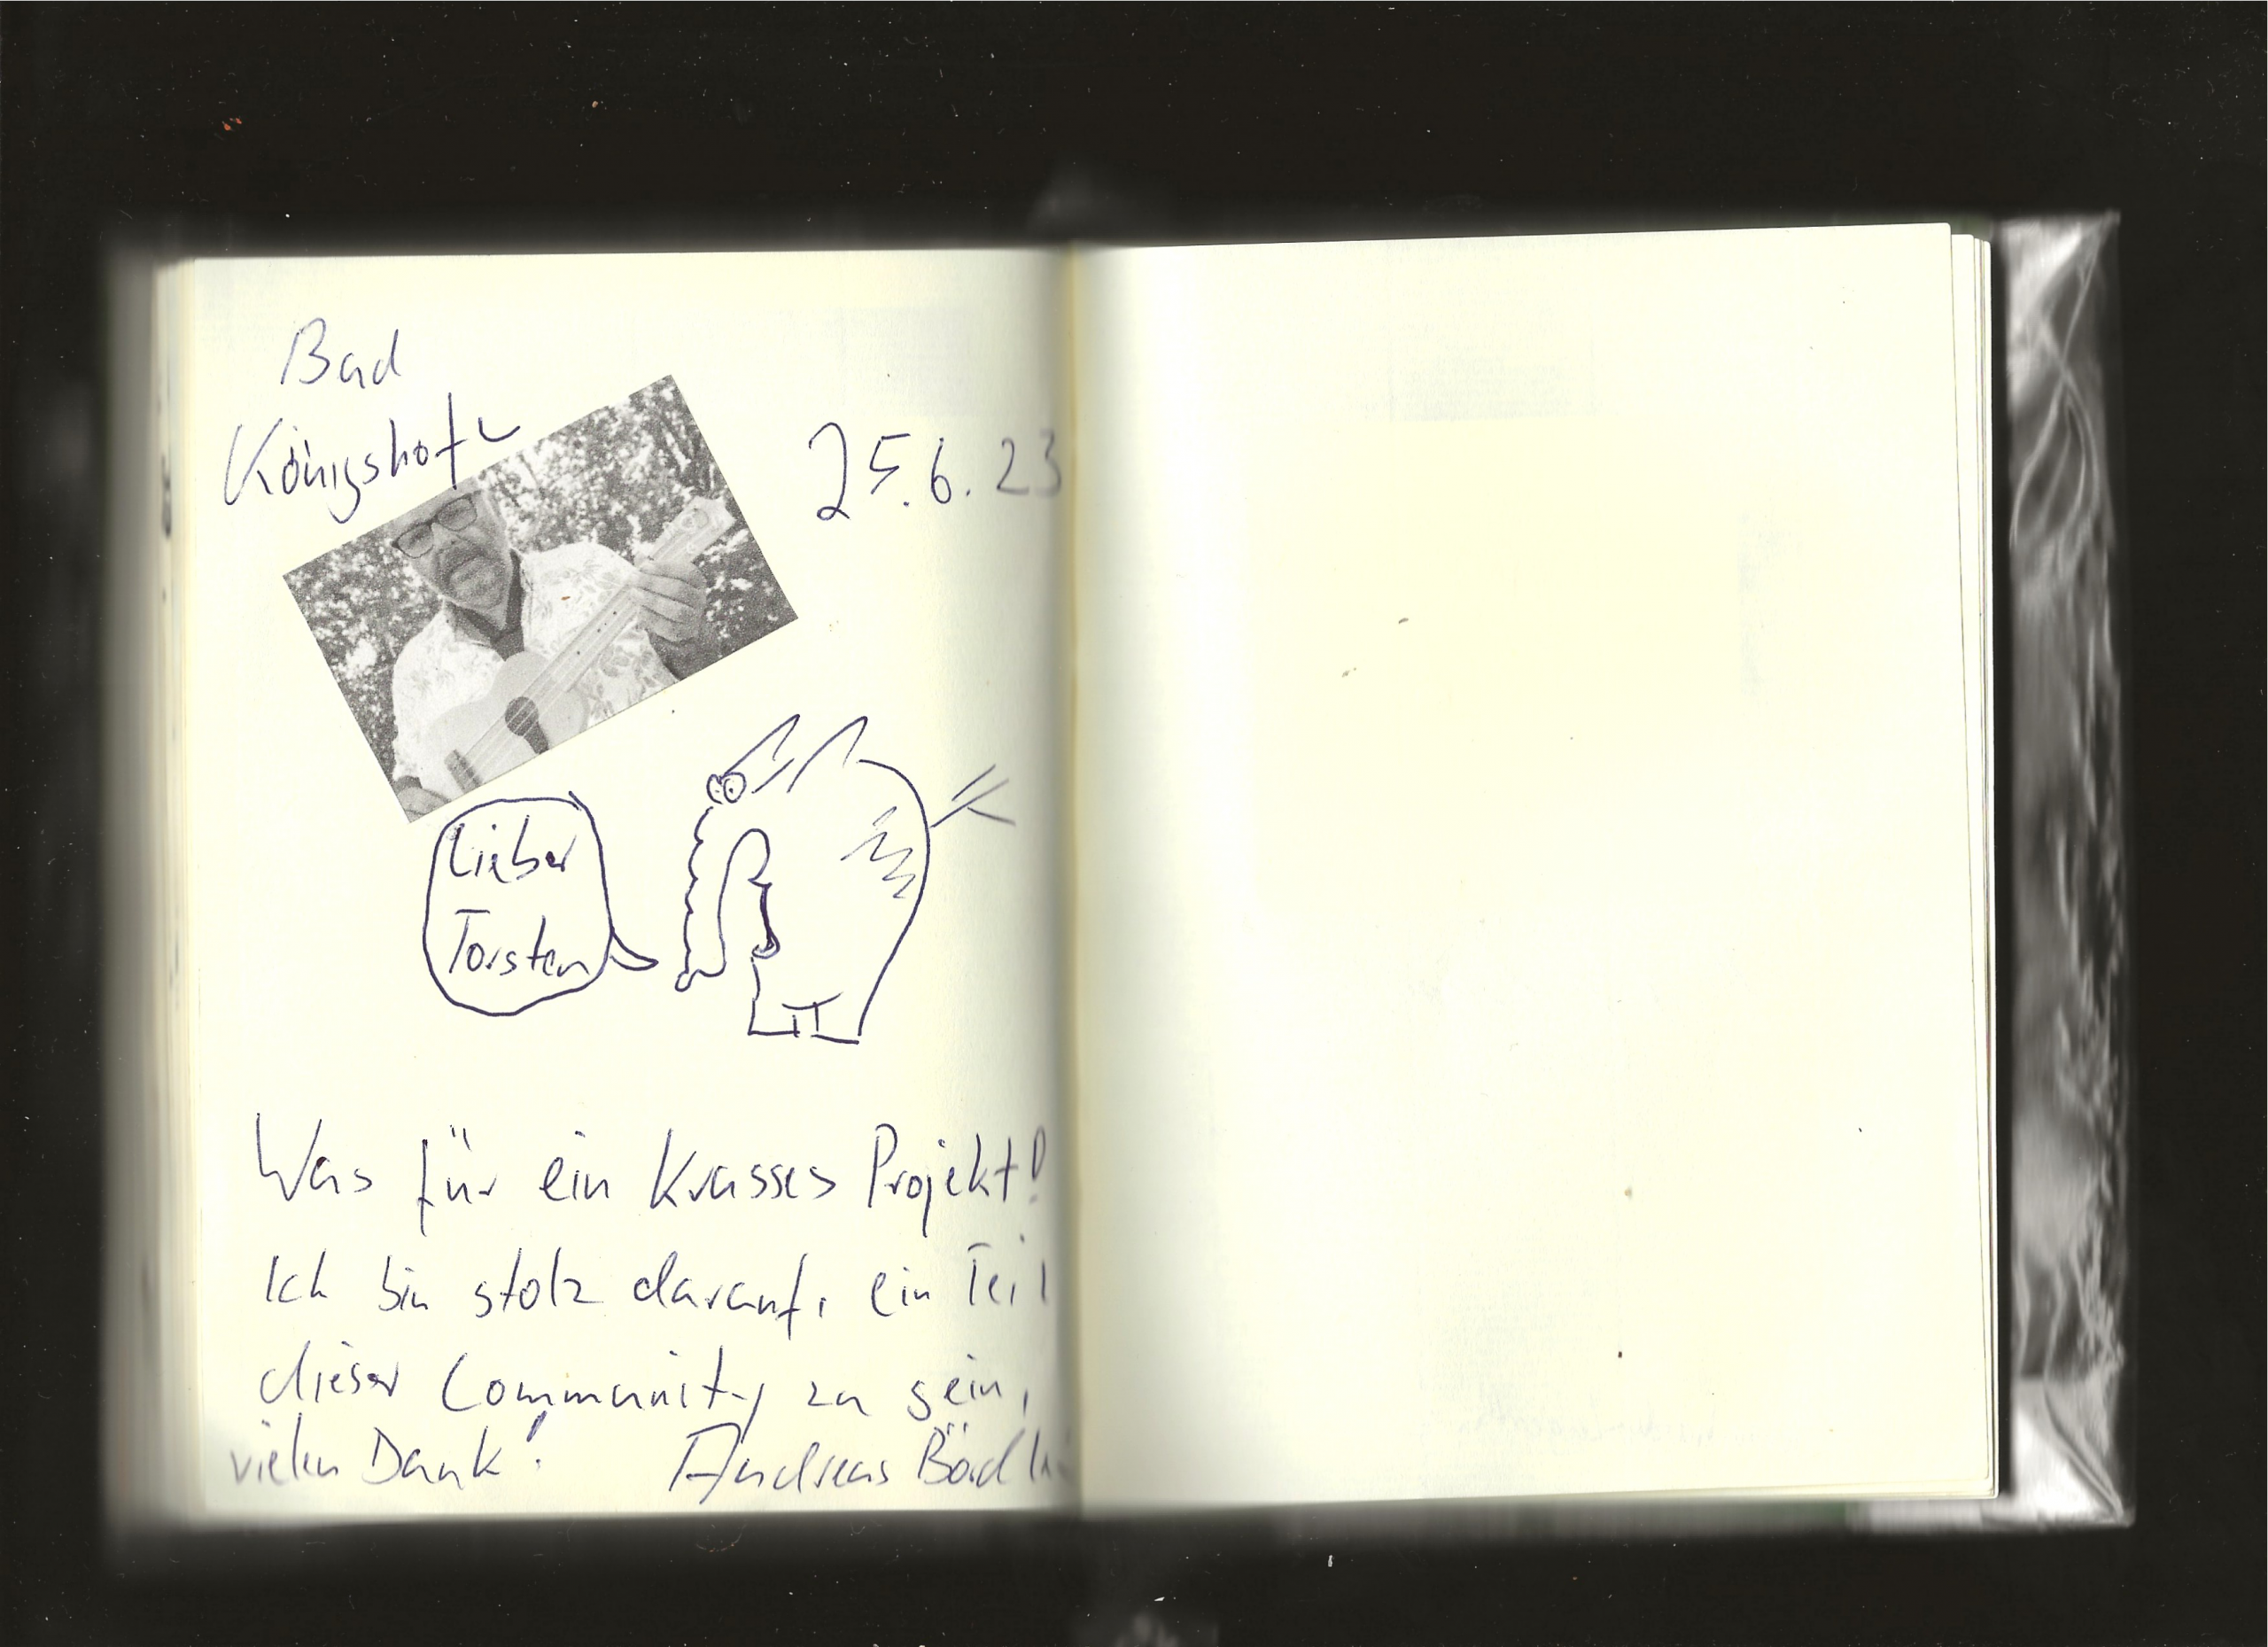 Bad
Königshofen
25.6.23
Lieber
Torsten
Was für ein krasses Projekt!
Ich bin stolz darauf, ein Teil
dieser Community zu sein,
vielen Dank! Andreas